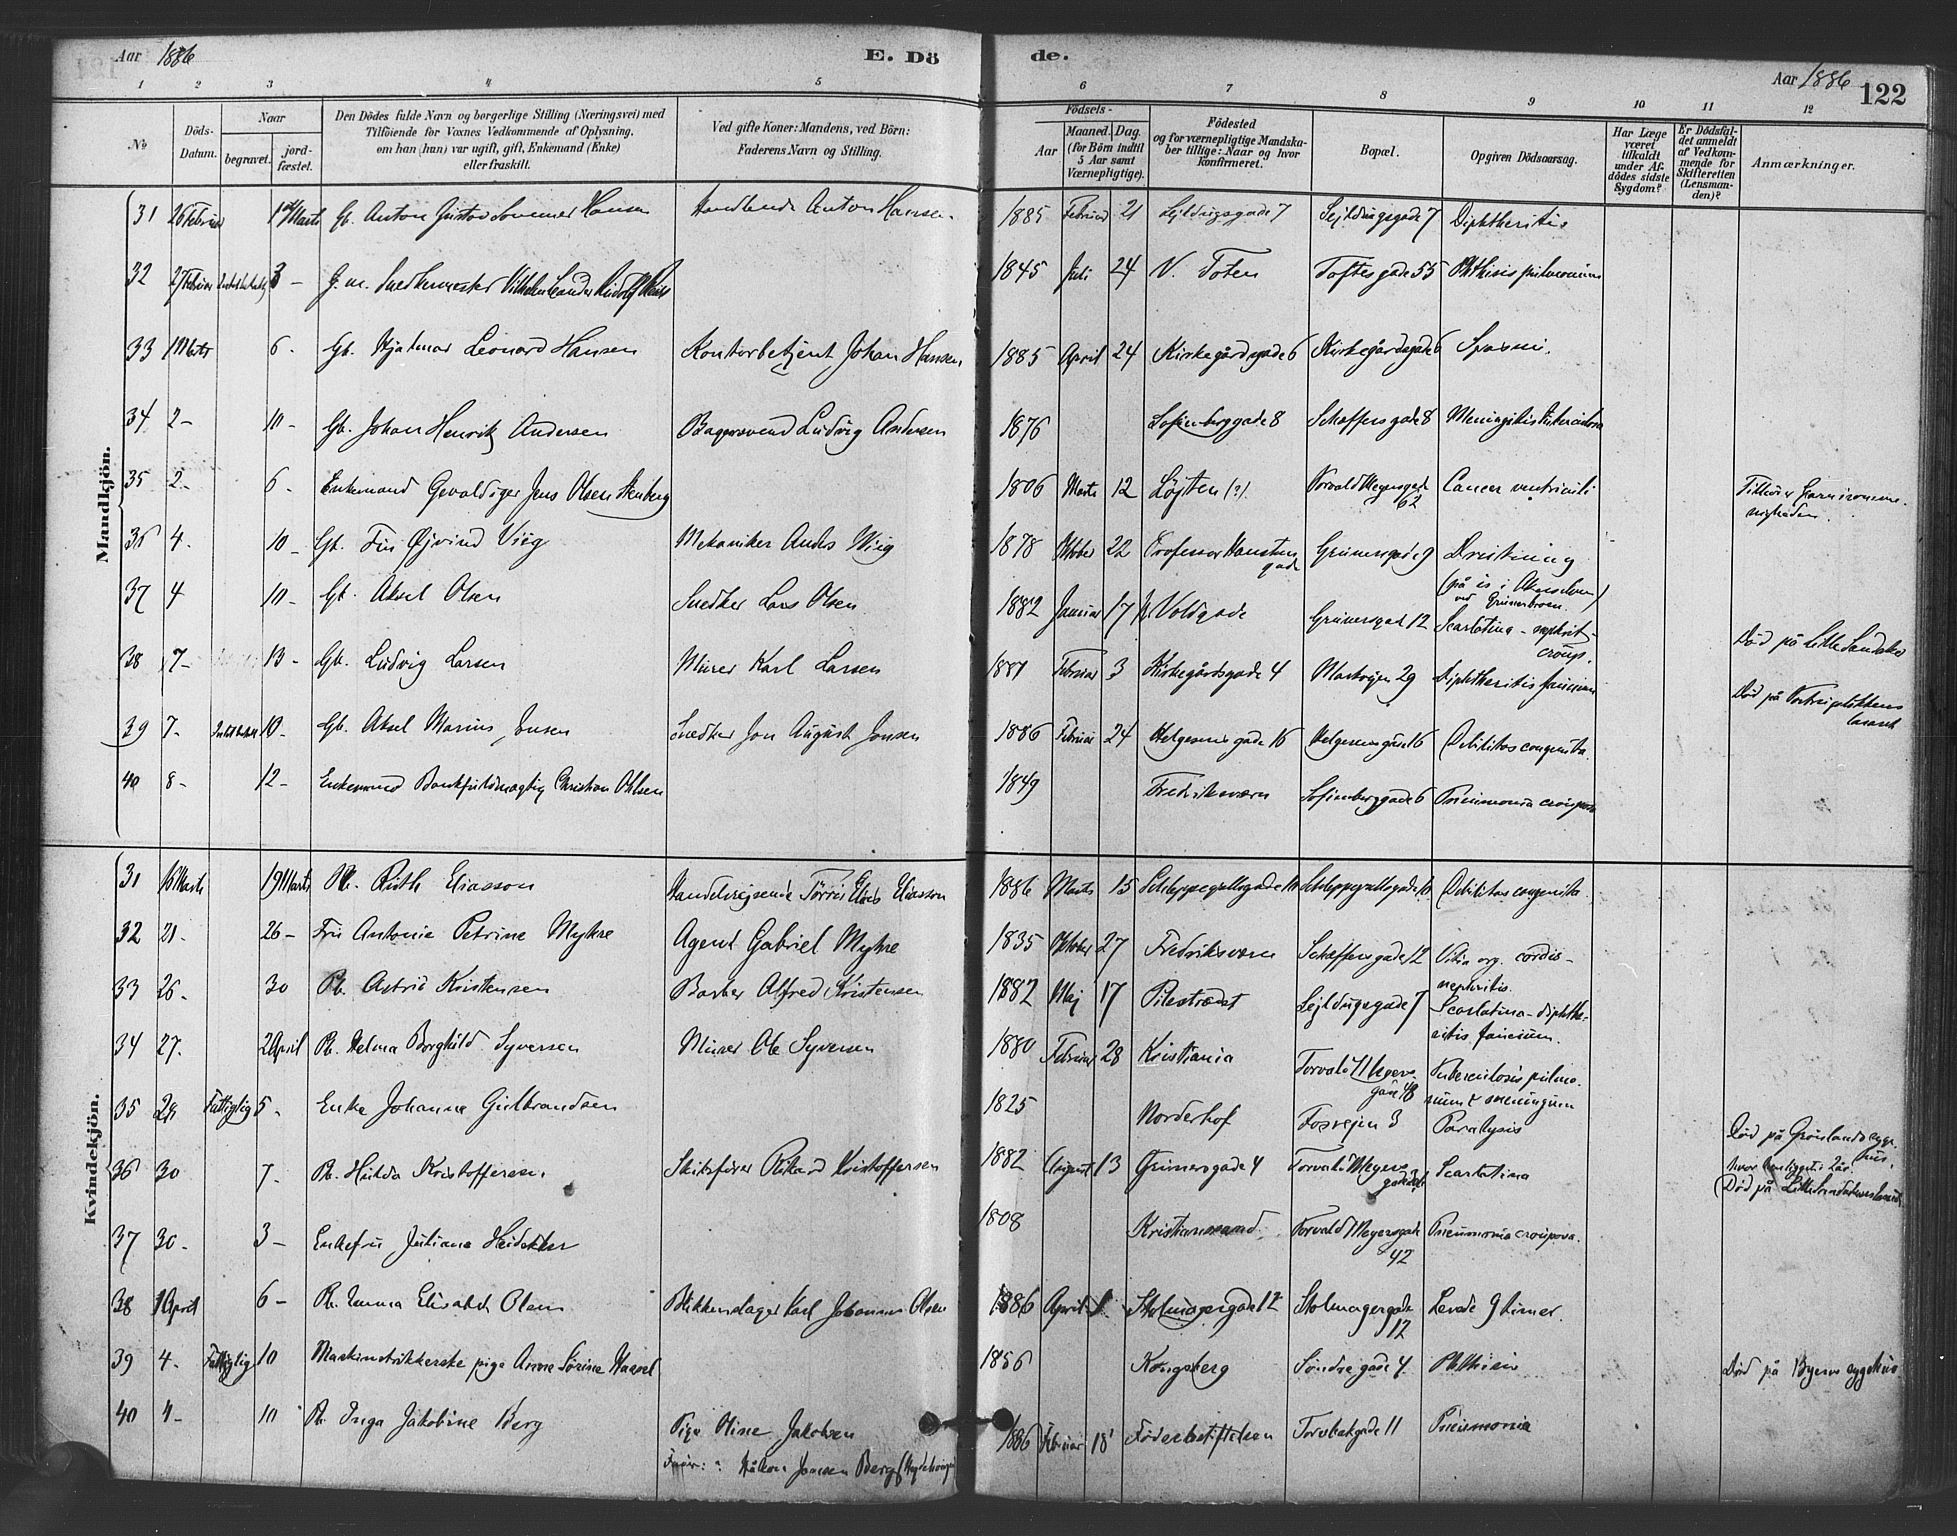 Aar 1886
E. Dö
de.
Aar 1886
122
1 2 3 4 5 6 7 8 9 10 11 12
No
Döds-Datum.
Naar
begravet.
jordfæstet.
Den Dödes fulde Navn og borgerlige Stilling (Næringsvei) med
Tilföiende for Voxnes Vedkommende af Oplysning,
om han (hun) var ugift, gift, Enkemand (Enke)
eller fraskilt.
Ved gifte Koner: Mandens, ved Börn:
Faderens Navn og Stilling.
Födsels-
Aar
Maaned. Dag.
(for Börn indtil
5 Aar samt
Værnepligtige).
Födested
og for værnepligtige Mandska-
ber tillige: Naar og hvor
konfirmeret.
Bopæl.
Opgiven Dödsaarsag.
Har Læge
været
tilkaldt
under Af-
dödes sidste
Sygdom?
Er Dödsfal-
det anmeldt
af Vedkom-
mende for
Skifteretten
(Lensman-
den)?
Anmærkninger.
Mandkjön.
31 26 Februar 1 Marts Gb. Anton Gustav Sommer Hansen Handlende Anton Hansen 1885 Februar 21 Sejldugsgade 7 Sejldugsgade 7 Diphtheritis
32 27 Februar 3 – G. m. Snedkermester Vilhelm Leander Rudolf 1845 Juli 24 V. Toten Toftesgade 55 Phthisis pulmonum
33 1 Marts 6 – Gb. Hjalmar Leonard Hansen Kontorbetjent Johan Hansen 1885 April 24 Kirkegårdsgade 6 Kirkegårdsgade 6 Spasmi.
34 2 – 10 – Gb. Johan Henrik Andersen Bagersvend Ludvig Andersen 1876 Sofienberggade 8 Schæffersgade 8 Meningitis
35 2 – 6 – Enkemand Gevaldiger Jens Olsen Stenberg 1806 Marts 12 Løjten (?). Torvald Meyersgade 62 Cancer ventriculi
Tilhører Garnisonsmenigheden.
36 4 – 10 – Gb. Øjvind Wiig Mekaniker Anders Wiig 1878 Oktober 22 Professor Hanstens gade Grünersgade 9 Drukning
(på is i Akerselven ved Grünerbroen.)
37 4 10 – Gb. Aksel Olsen Snedker Lars Olsen 1882 Januar 17 Voldgade Grünersgade 12 Scarlatina – nephrit – croup.
Død på Lille Sandaker
38 7 – 13 – Gb. Ludvig Larsen Murer Karl Larsen 1881 Februar 3 Kirkegårdsgade 4 Markvejen 29 Diphtheritis faucium
Død på lasaret
39 7 – 10 – Gb. Aksel Marius Jonsen Snedker Jon August Jonsen 1886 Februar 24 Helgesens gade 16 Helgesens gade 16 Debilitas congenita
40 8 – 12 – Enkemand Bankfuldmægtig Christian Ohlsen 1849 Fredriksværn Sofienberggade 6 Pneumonia crouposa
Kvindekjön.
31 16 Marts 19 Marts Pb. Ruth Eliasson Handelsrejsende Tørris Elias Eliasson 1886 Marts 15 Schleppegrellsgade Schleppegrellsgade Debilitas congenita.
32 21 – 26 – Fru Antonie Petrine Myhre Agent Gabriel Myhre 1835 Oktober 27 Fredriksværn Schæffersgade 12 Vitia org. cordis – nephritis.
33 26 – 30 Pb. Astrid Kristensen Barber Alfred Kristensen 1882 Maj 17 Pilestrædet Sejldugsgade 7 Scarlatina – diphtheritis faucium.
34 27 – 2 April Pb. Helma Borghild Syversen Murer Ole Syversen 1880 Februar 28 Kristiania Torvald Meyers gade 48 Tuberculosis pulmonum & meningum
35 28 Fattiglig 5 – Enke Johanne Gulbrandsen 1825 Norderhof Fosvejen 3 Paralysis
Død på Grønlands sygehus, hvor hun ligget i 2 år.
36 30 7 – Pb. Hulda Kristoffersen. Skibsfører Rikard Kristoffersen 1882 August 13 Grünersgade 4 Torvald Meyers gade Scarlatina
Død på Lille Sandakers lasaret
37 30 – 3 – Enkefru Juliane Heidekker 1808 Kristianssand Torvald Meyersgade 42 Pneumonia crouposa.
38 1 April 6 – Pb. Emma Elisabeth Olsen Blikkenslager Karl Johannes Olsen 1886 April 1 Stolmagergade 12 Stolmagergade 12 Levede 9 timer.
39 4 – Fattiglig 10 Maskinstrikkerske pige Anne Sørine 1856 Kongsberg Søndre gade 4 Phthisis
Død på Byens sygehus
40 4 – 10 Pb. Inga Jakobine Berg Pige Oline Jakobsen 1886 Februar 18 Fødselsstiftelsen Torvbakgade 11 Pneumonia
Håkon Jonsen Berg